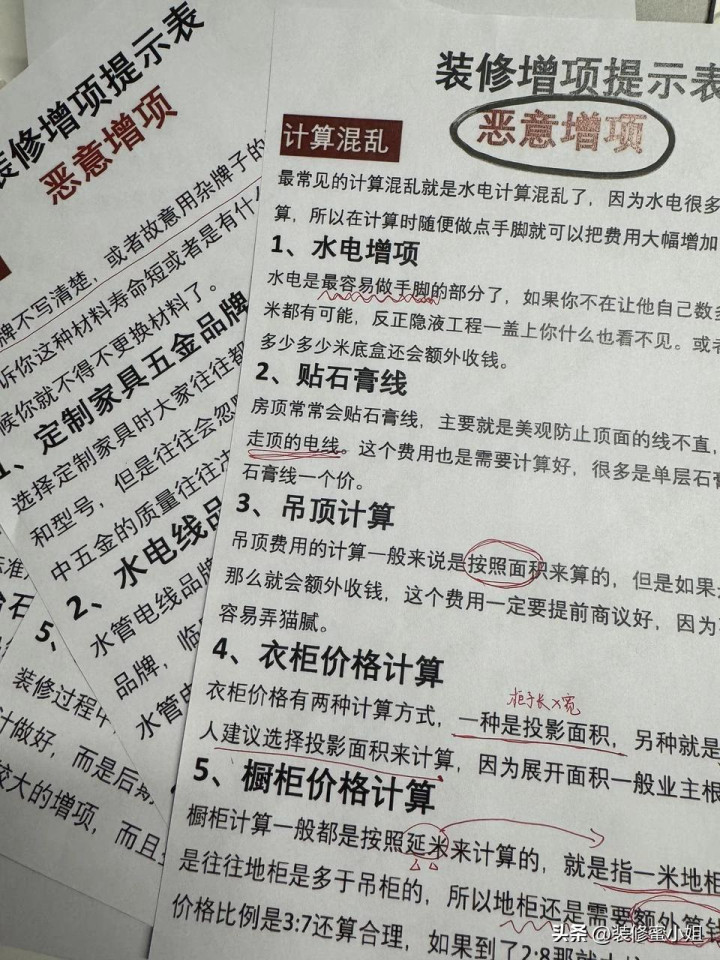 装修增项提示表
恶意增项
计算混乱
最常见的计算混乱就是水电计算混乱了，因为水电很多
算，所以在计算时随便做点手脚就可以把费用大幅增加
1、水电增项
水电是最容易做手脚的部分了，如果你不在让他自己数多
米都有可能，反正隐液工程一盖上你什么也看不见。或者
多少多少米底盒还会额外收钱。
2、贴石膏线
房顶常常会贴石膏线，主要就是美观防止顶面的线不直，
走顶的电线。这个费用也是需要计算好，很多是单层石膏
石膏线一个价。
3、吊顶计算
吊顶费用的计算一般来说是按照面积来算的，但是如果
那么就会额外收钱，这个费用一定要提前商议好，因为
容易弄猫腻。
4、衣柜价格计算
柜子长×宽
衣柜价格有两种计算方式，一种是投影面积，另种就是
人建议选择投影面积来计算，因为展开面积一般业主根
5、橱柜价格计算
橱柜计算一般都是按照延米来计算的，就是指一米地柜
是往往地柜是多于吊柜的，所以地柜还是需要额外算钱
价格比例是3:7还算合理，如果到了2:8那就
装修增项提示表
恶意增项
牌不写清楚，或者故意用杂牌子的
诉你这种材料寿命短或者是有什么
候你就不得不更换材料了。
1、定制家具五金品牌
选择定制家具时大家往往都
和型号，但是往往会忽
中五金的质量往往决
2、水电线品
水管电线品牌
品牌，临
水管电
5、
装修过程中
计做好，而是后期
较大的增项，而且
头条 @装修蜜小姐